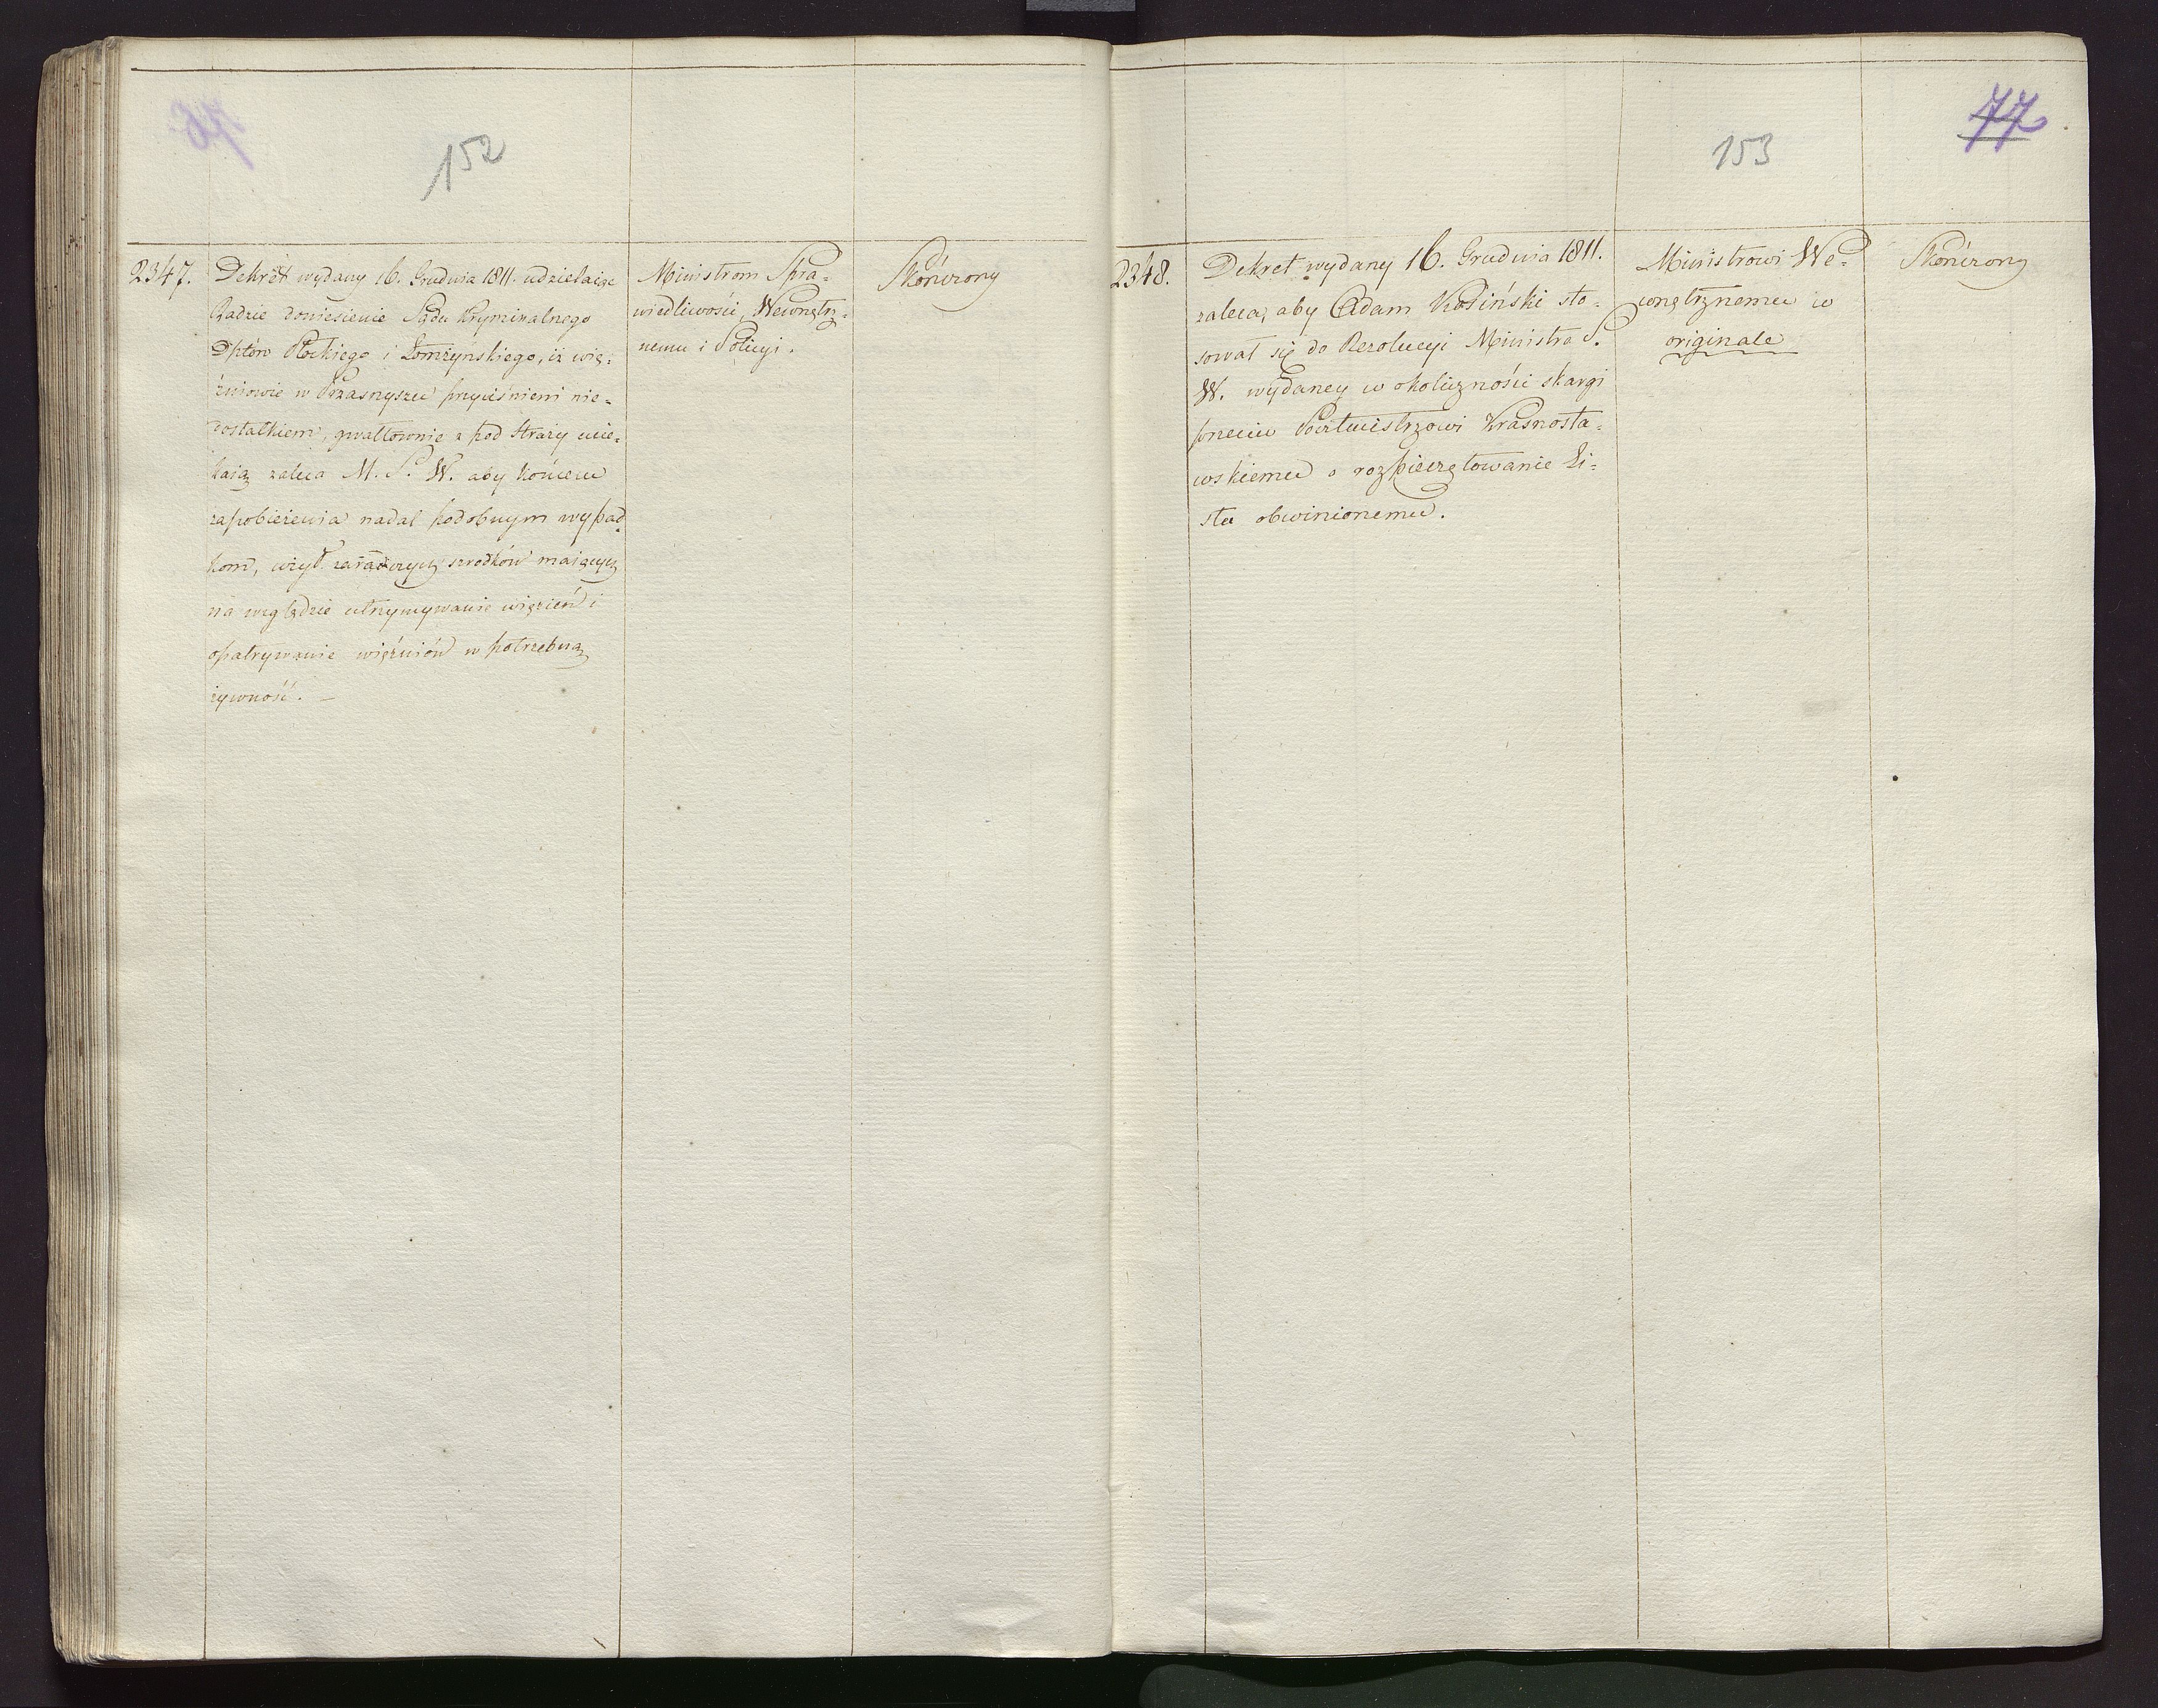 152
2347.
Dekret wydany 16. Grudnia 1811. udzielaiąc
Radzie doniesienie Sądu Kryminalnego
Dptów Płockiego i Łomżyńskiego, iż wię-
źniowie w Przasnyszu przyciśnieni nie-
dostatkiem, gwałtownie z pod Straży ucie-
kaią zaleca M. S. W. aby końcem
zapobieżenia nadal podobnym wypad-
kom, użył zaradczych srzodków maiących
na względzie utrzymywanie więzień i
opatrywanie więźniów w potrzebną
żywność. –
Ministrom Spra-
wiedliwości, Wewnętrz-
nemu i Policyi.
Skończony
77
153
2348.
Dekret wydany 16. Grudnia 1811.
zaleca, aby Adam Kosiński sto-
sował się do Rezolucyi Ministra S.
W. wydaney w okoliczności skargi
przeciw Pocztmistrzowi Krasnosta-
wskiemu o rozpieczętowanie Li-
stu obwinionemu.
Ministrowi We-
wnętrznemu w
originale
Skończony